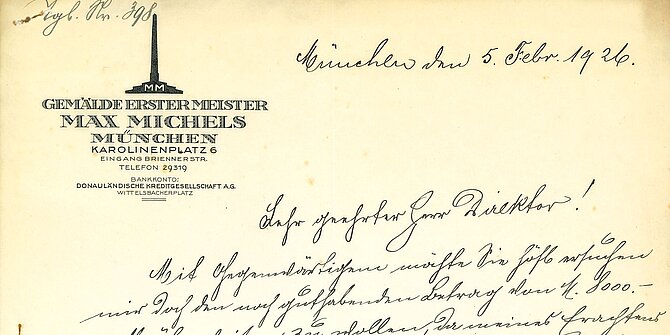 Tgb. Nr. 398
München den 5. Febr. 1926.
MM
GEMÄLDE ERSTER MEISTER
MAX MICHELS
MÜNCHEN
KAROLINENPLATZ 6
EINGANG BRIENNERSTR.
TELEFON 29319
BANKKONTO:
DONAULÄNDISCHE KREDITGESELLSCHAFT A.G.
WITTELSBACHERPLATZ
Sehr geehrter Herr Direktor!
Mit Gegenwärtigem möchte Sie höfl. ersuchen
mir doch den noch guthabenden Betrag von M. 8000.-
zu wollen, da meines Erachtens